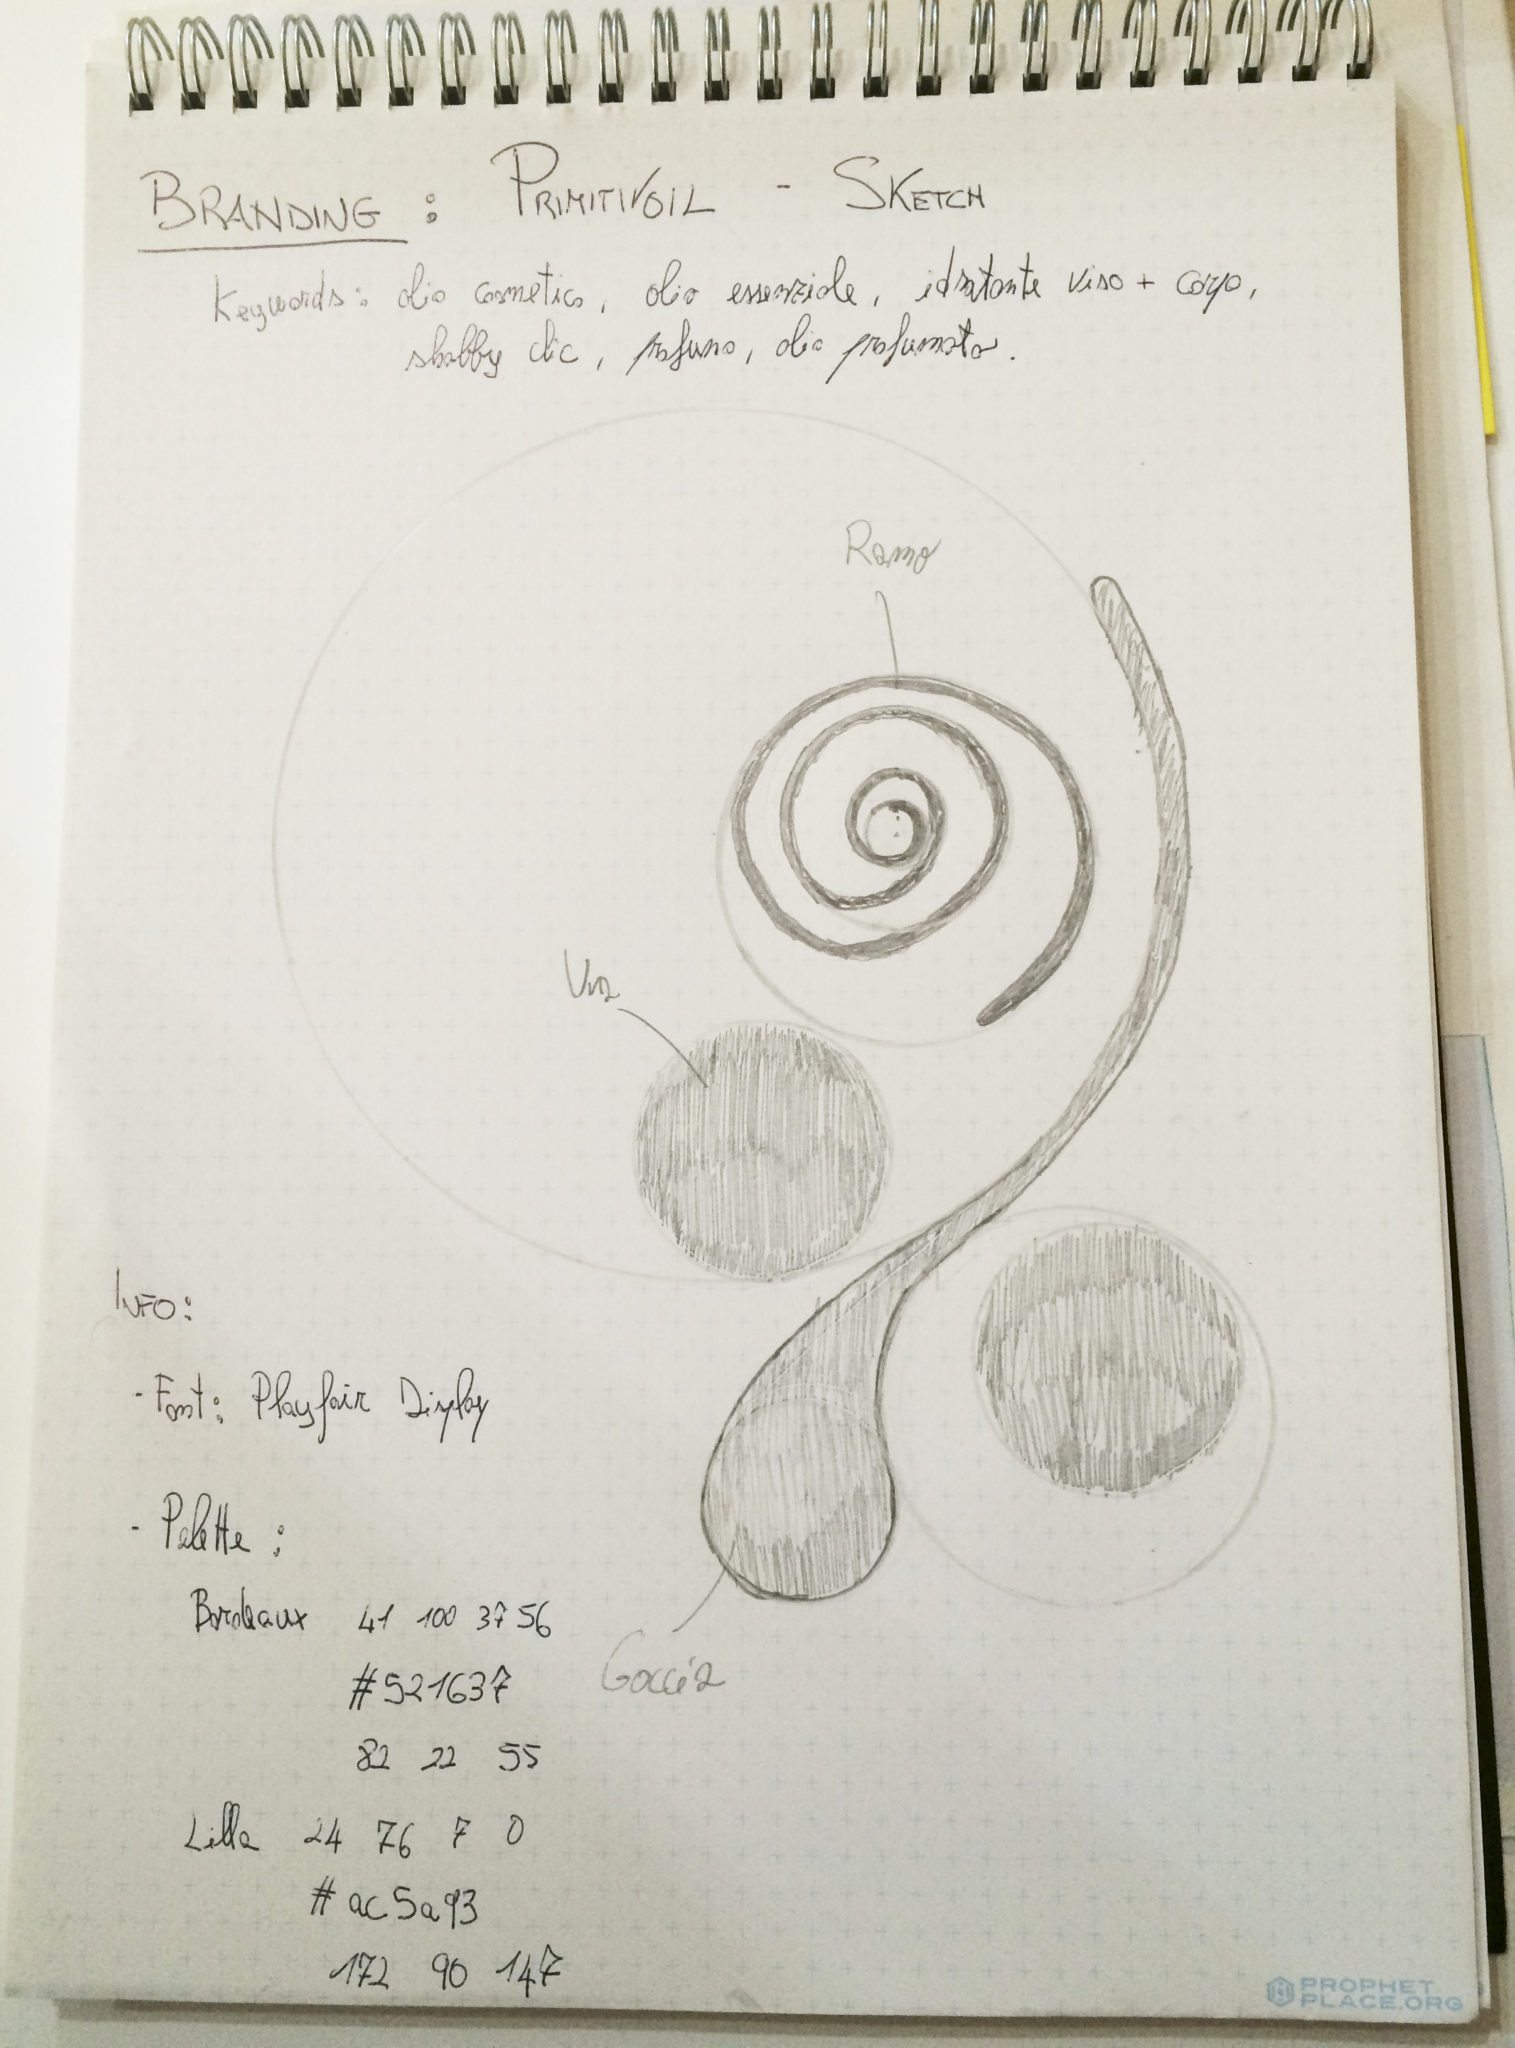 BRANDING : PRIMITIVOIL - SKETCH
Keywords: olio cosmetico, olio essenziale, idratante viso + corpo,
shabby chic, profumo, olio profumato.
Ramo
Uva
INFO:
- Font: Playfair Display
- Palette :
Bordeaux 41 100 37 56
#521637
Goccia
82 22 55
Lilla 24 76 7 0
#ac5a93
172 90 147
PROPHET
PLACE.ORG